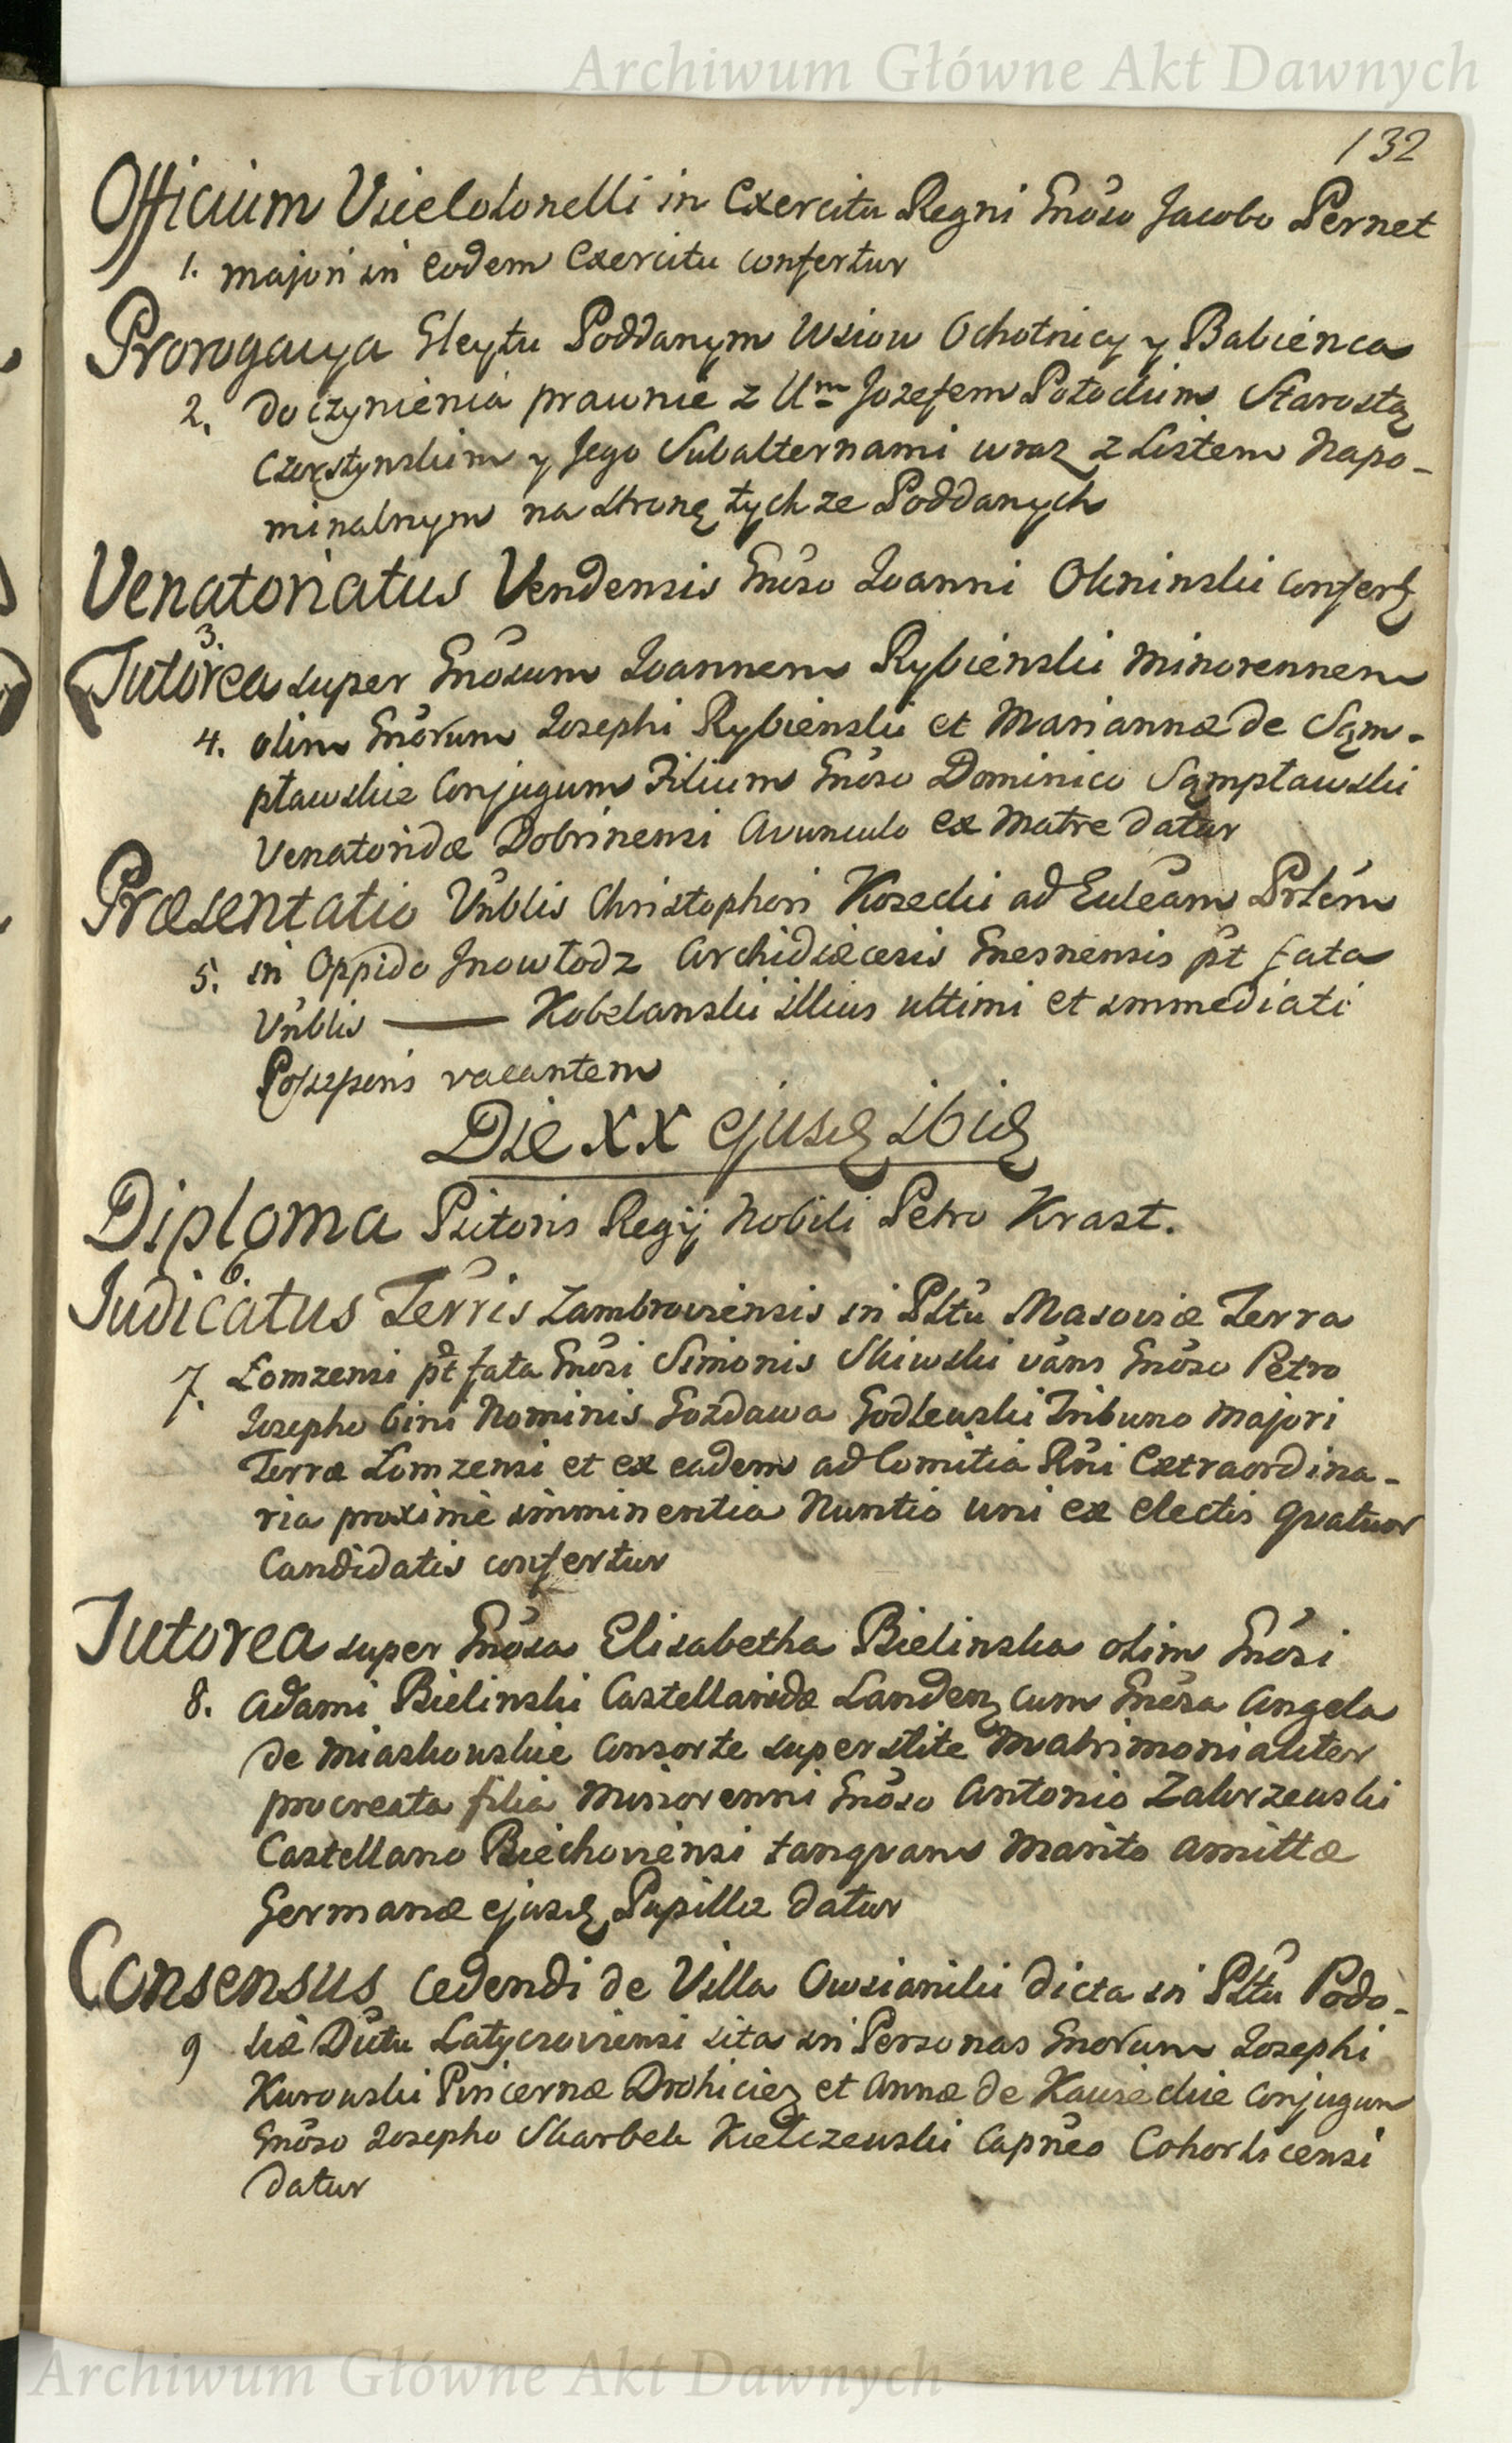 Archiwum Główne Akt Dawnych
132
Officium Vicelolonelli in Exercitu Regni Gnöso Jacobo Pernet
1. majori in eodem Exercitu confertur
Prorogacya Gleytu Poddanym Wsiow Ochotnicy y Babienca
2. do czynienia prawnie z Um Jozefem Potockim Starostą
Czorsztynskim y Jego Subalternami wraz z Listem Napo-
minalnym na stronę tychze Poddanych
Venatoriatus Vendensis Gnöso Ioanni Okninski confertz
3.
Tutorea super Gnösum Ioannem Rybienski minorennem
4. olim Gnörum Iosephi Rybienski et Mariannæ de Sąm-
pławskie Conjugum Filium Gnöso Dominico Sąmpławski
Venatoridæ Dobrinensi Avunculo ex Matre datur
Præsentatio Vnblis Christophori Kosecki ad Ecleam Prlem
5. in Oppido Inowłodz Archidiæcesis Gnesnensis pt fata
Vnblis — Kobelanski illius ultimi et immediati
Possessoris vacantem
Die XX ejusd ibid
Diploma Pictoris Regij Nobili Petro Krast.
6.
Judicatus Terris Zambroviensis in Pltu Masoviæ Terra
7. Lomzensi pt fata Gnösi Simonis Skiwski vans Gnöso Petro
Iosepho bini Nominis Gozdawa Godlewski Tribuno Majori
Terræ Lomzensi et ex eadem ad Comitia Rni Extraordina-
ria proxime imminentia Nuntio uni ex electis quatuor
Candidatis confertur
Tutorea super Gnösa Elisabetha Bielinska olim Gnösi
8. Adami Bielinski Castellanidæ Landenz cum Gnösa Angela
de Miaskowskie consorte superstite Matrimonialiter
procreata filia Minorenni Gnöso Antonio Zakrzewski
Castellano Biechoviensi tanquam Marito Amittæ
Germanæ ejusd Pupillæ datur
Consensus cedendi de Villa Owsianiki dicta in Pltu Podo-
9 liæ Dttu Latyczoviensi sita in Personas Gnorum Iosephi
Kurowski Pincernæ Drohiciez et Annæ de Kawieckie Conjugum
Gnöso Iosepho Skarbek Kiełczewski Capneo Cohorlicensi
datur
Archiwum Główne Akt Dawnych